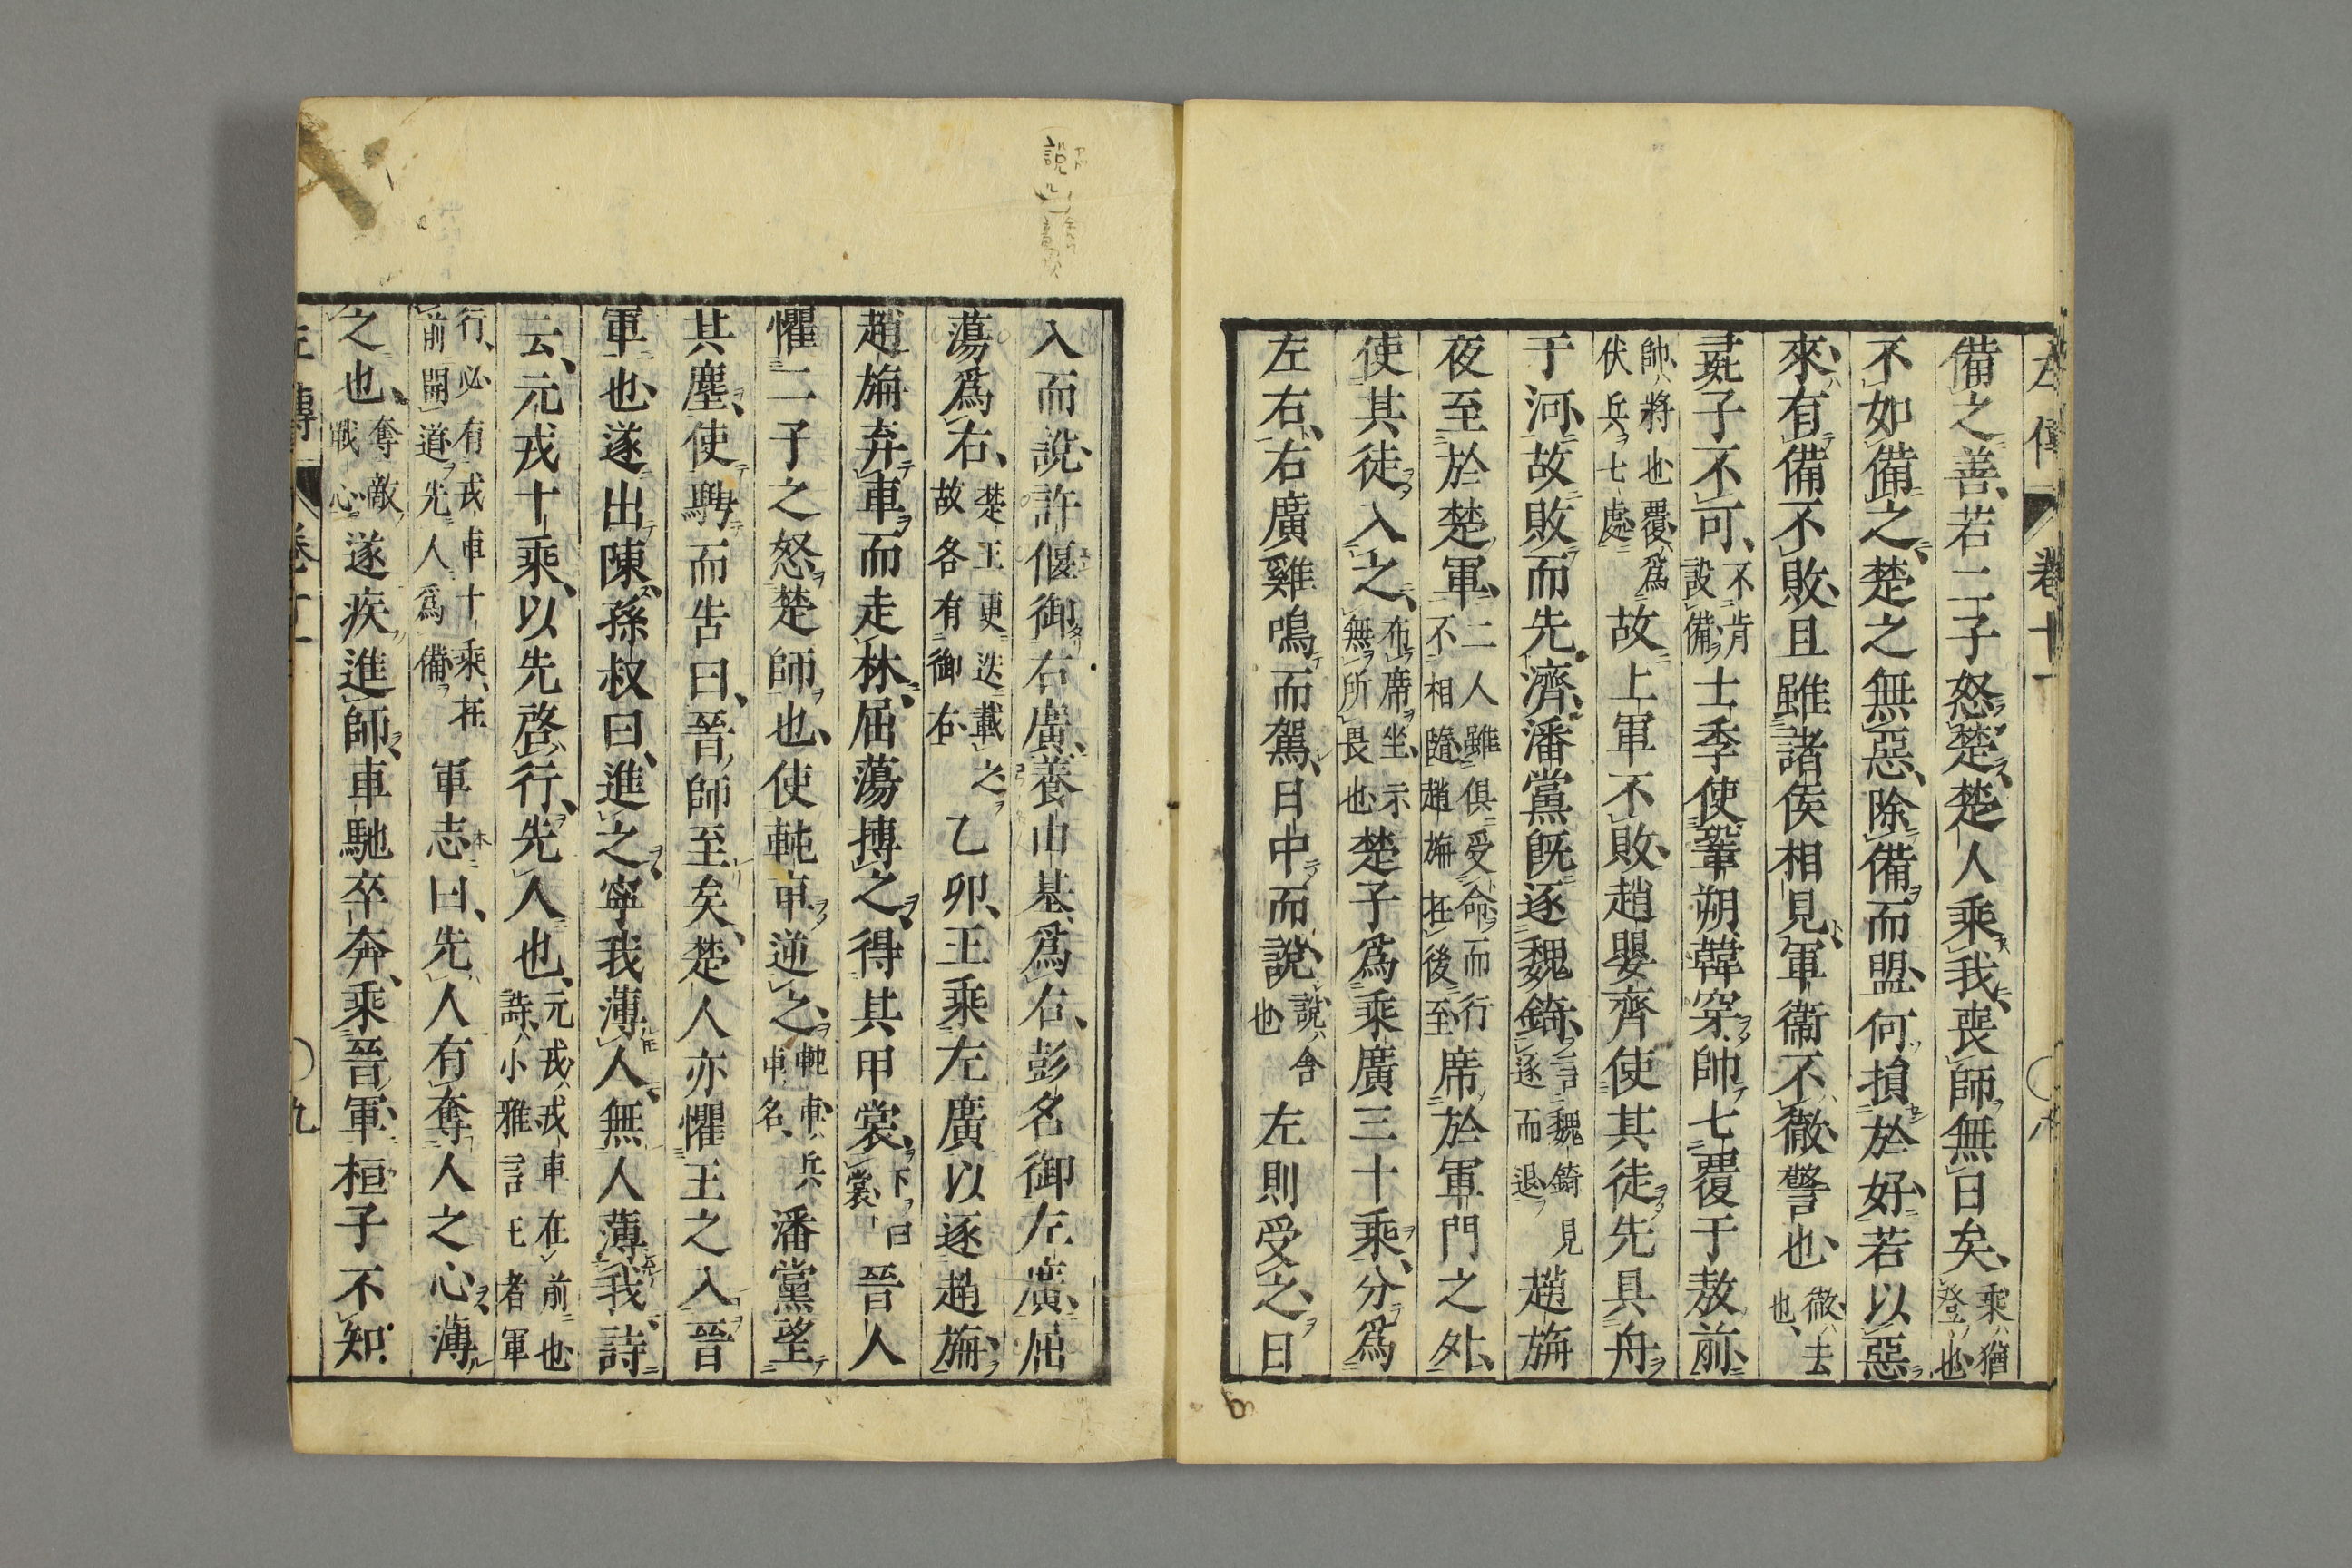 左傳 卷十一
備之善若二子怒楚楚人乘我喪師無日矣乘猶登也
不如備之楚之無惡除備而盟何損於好若以惡
來有備不敗且雖諸侯相見軍衞不徹警也徹去也
彘子不可不肯設備士季使鞏朔韓穿帥七覆于敖前
帥將也覆爲伏兵七處故上軍不敗趙嬰齊使其徒先具舟
于河故敗而先濟潘黨既逐魏錡言魏錡見逐而退趙旃
夜至於楚軍二人雖俱受命而行不相隨趙旃在後至席於軍門之外
使其徒入之布席坐示無所畏也楚子爲乘廣三十乘分爲
左右右廣雞鳴而駕日中而說說舍也左則受之日
入而說許偃御右廣養由基爲右彭名御左廣屈
蕩爲右楚王更迭載之故各有御右乙卯王乘左廣以逐趙旃
趙旃弃車而走林屈蕩搏之得其甲裳下曰裳晉人
懼二子之怒楚師也使軘車逆之軘車兵車名潘黨望
其塵使騁而告曰晉師至矣楚人亦懼王之入晉
軍也遂出陳孫叔曰進之寧我薄人無人薄我詩
云元戎十乘以先啓行先人也元戎戎車在前也詩小雅言王者軍
行必有戎車十乘在前開道先人爲備軍志曰先人有奪人之心薄
之也奪敵戰心遂疾進師車馳卒奔乘晉軍桓子不知
左傳 卷十一 九